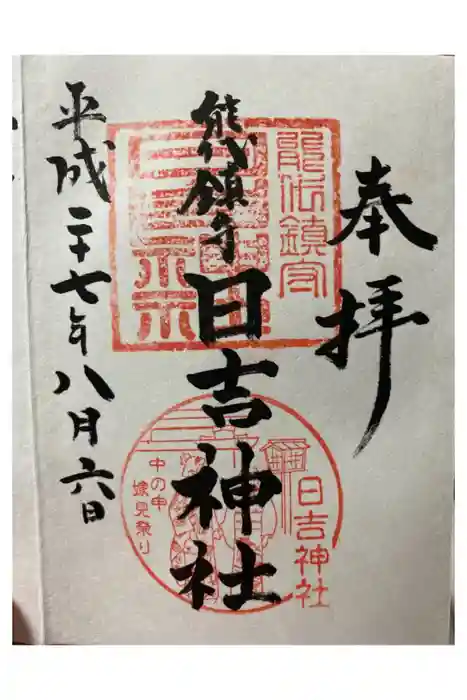 奉拝
能代鎮守
日吉神社
平成二十七年八月六日
能代鎮守
日吉神社
中の申
嫁見祭り